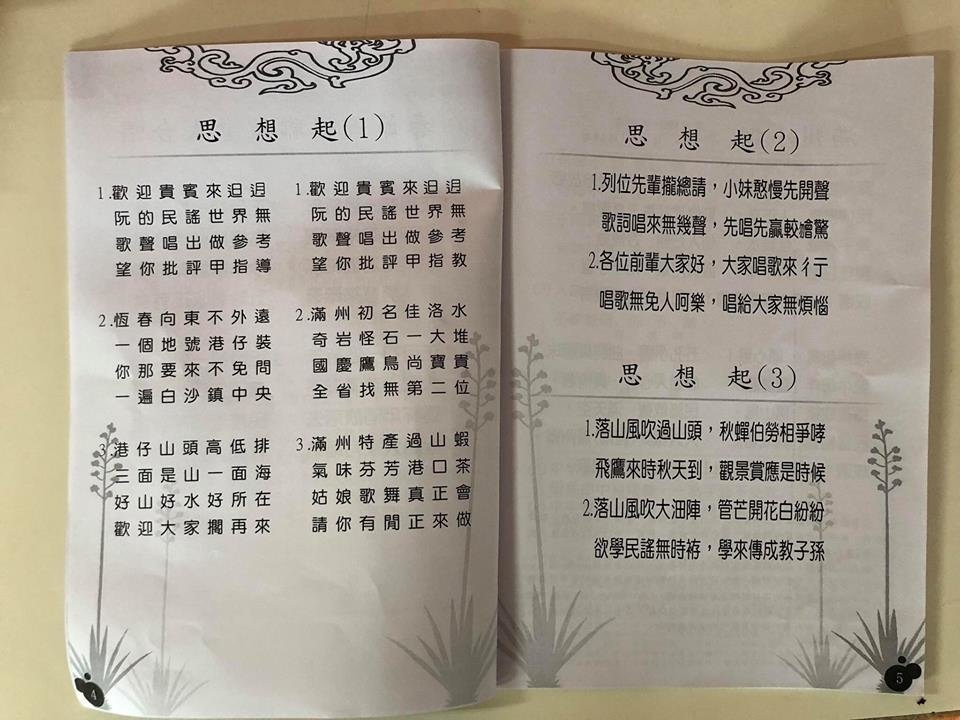 思想起(1)
1.歡迎貴賓來𨑨迌
阮的民謠世界無
歌聲唱出做參考
望你批評甲指導
2.恆春向東不外遠
一個地號港仔裝
你那要來不免問
一遍白沙鎮中央
3.港仔山頭高低排
三面是山一面海
好山好水好所在
歡迎大家擱再來
1.歡迎貴賓來𨑨迌
阮的民謠世界無
歌聲唱出做參考
望你批評甲指教
2.滿州初名佳洛水
奇岩怪石一大堆
國慶鷹鳥尚寶貴
全省找無第二位
3.滿州特產過山蝦
氣味芬芳港口茶
姑娘歌舞真正會
請你有閒正來做
4
思想起(2)
1.列位先輩攏總請，小妹憨慢先開聲
歌詞唱來無幾聲，先唱先贏較襘驚
2.各位前輩大家好，大家唱歌來彳亍
唱歌無免人呵樂，唱給大家無煩惱
思想起(3)
1.落山風吹過山頭，秋蟬伯勞相爭哮
飛鷹來時秋天到，觀景賞應是時候
2.落山風吹大沺陣，管芒開花白紛紛
欲學民謠無時袸，學來傳成教子孫
5